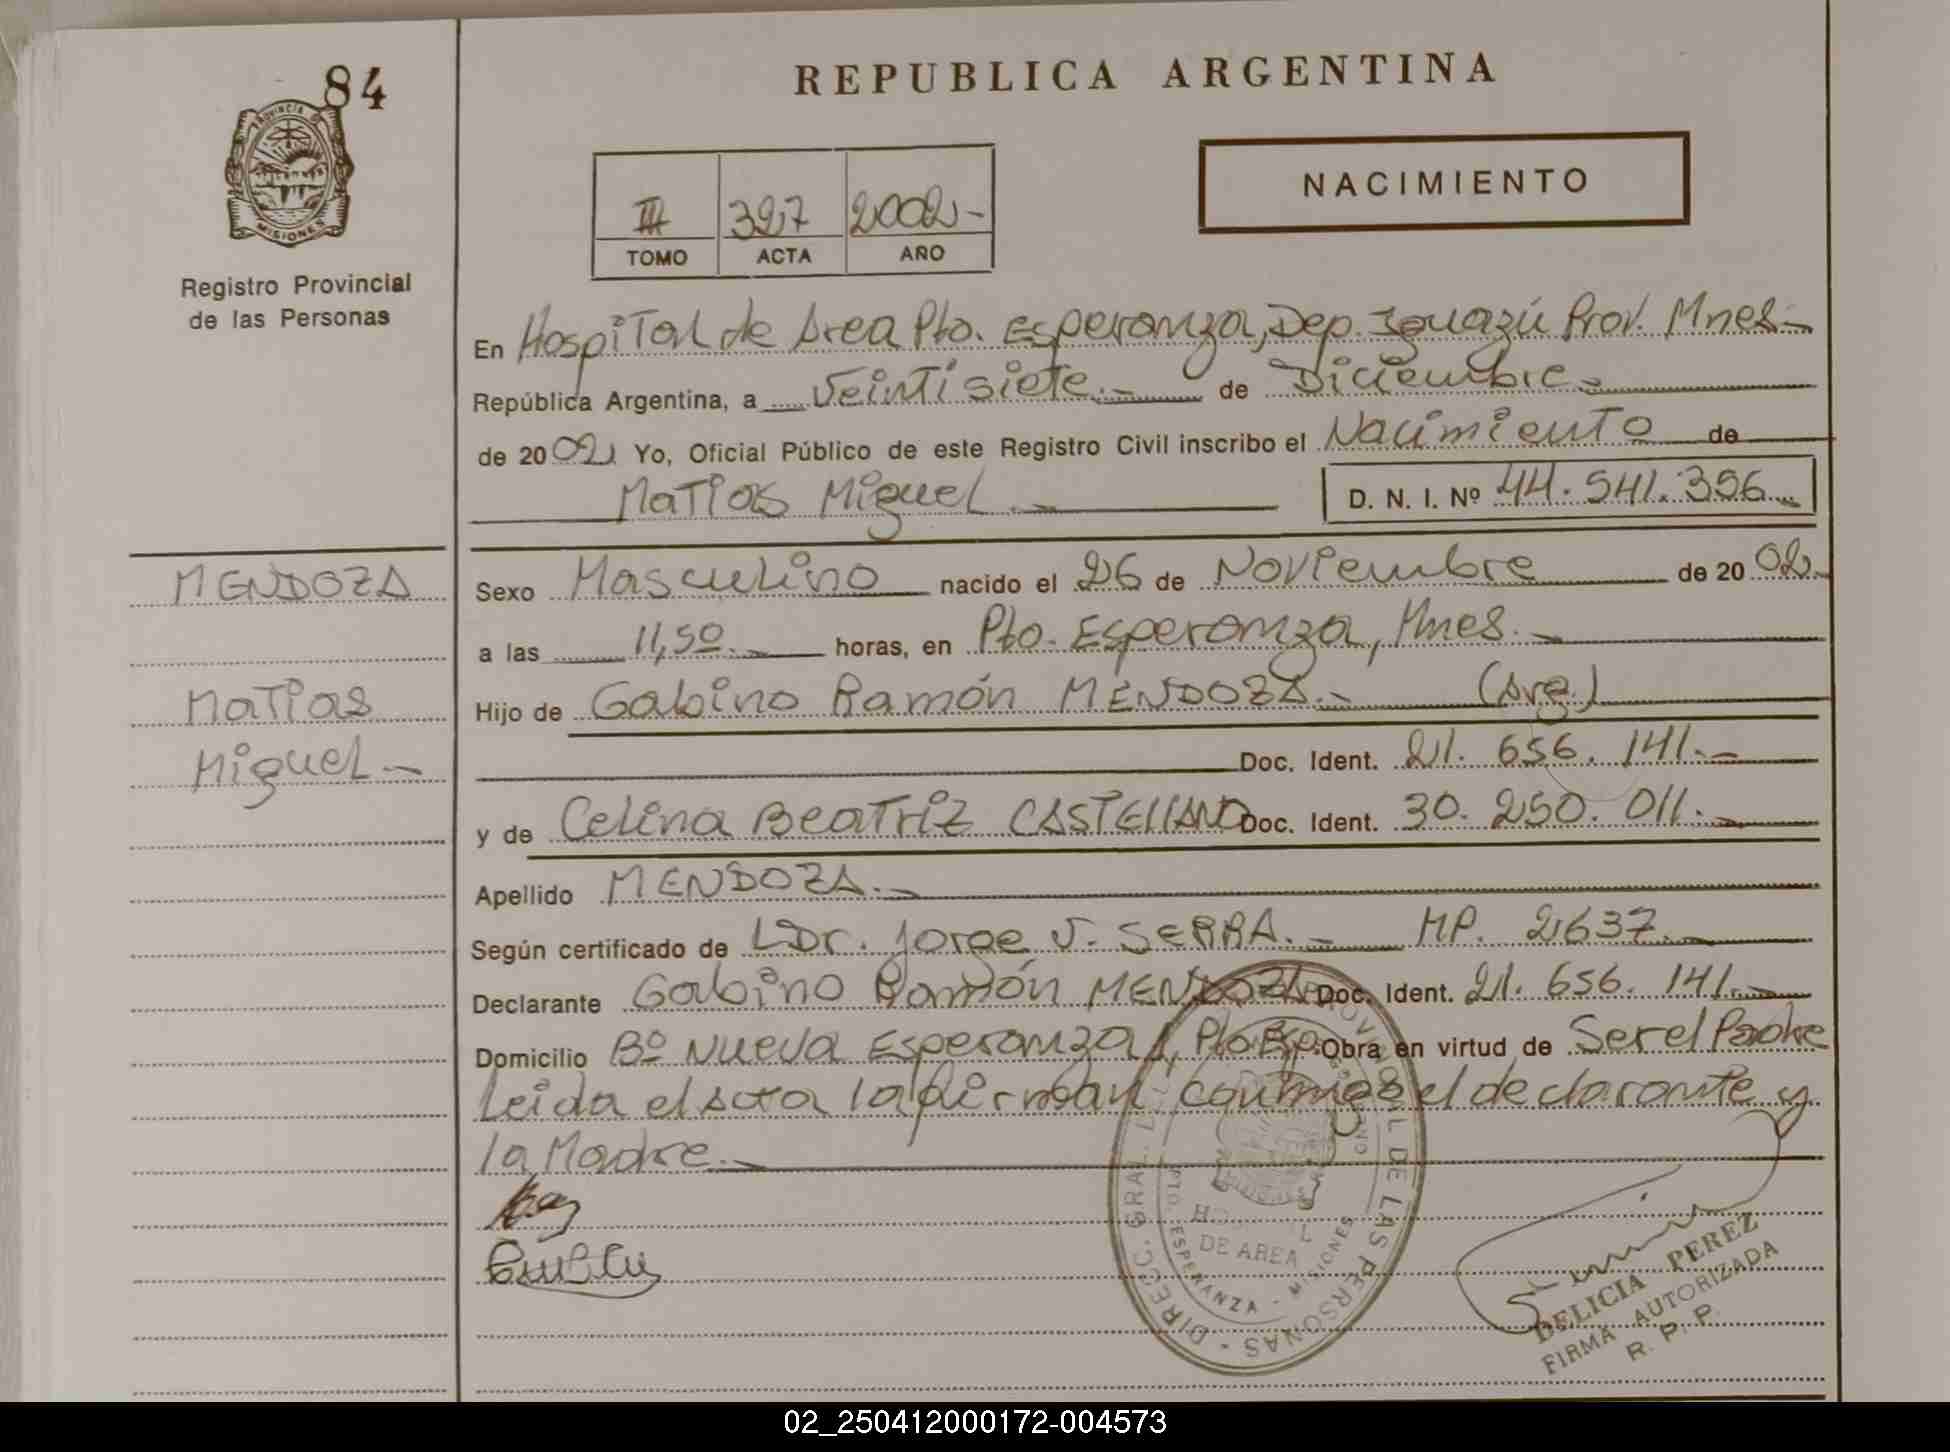 84
PROVINCIA D
MISIONES
Registro Provincial
de las Personas
REPUBLICA ARGENTINA
III 327 2002-
TOMO ACTA AÑO
NACIMIENTO
En Hospital de Area Pto. Esperanza, Dep. Iguazú Prov. Mnes.-
República Argentina, a Veintisiete.- de Diciembre.-
de 2002 Yo, Oficial Público de este Registro Civil inscribo el Nacimiento de
Matias Miguel.- D. N. I. Nº 44.541.356.-
MENDOZA
Matias
Miguel.-
Sexo Masculino nacido el 26 de Noviembre de 2002.-
a las 11,50.- horas, en Pto. Esperanza, Mnes.-
Hijo de Gabino Ramón MENDOZA.- (Arg.)
Doc. Ident. 21. 656. 141.-
y de Celina Beatriz CASTELLANO Doc. Ident. 30. 250. 011.-
Apellido MENDOZA.-
Según certificado de Dr. Jorge V. SERRA.- MP. 2637.-
Declarante Gabino Ramón MENDOZA Doc. Ident. 21. 656. 141.-
Domicilio Bº Nueva Esperanza, Pto Esp. Obra en virtud de Ser el Padre
Leida el acta la firman conmigo el declarante y
la Madre.-
DIRECC. GRAL. PROVINCIAL DE LAS PERSONAS
DE AREA
PTO. ESPERANZA - MISIONES
DELICIA PEREZ
FIRMA AUTORIZADA
R. P. P.
02_250412000172-004573